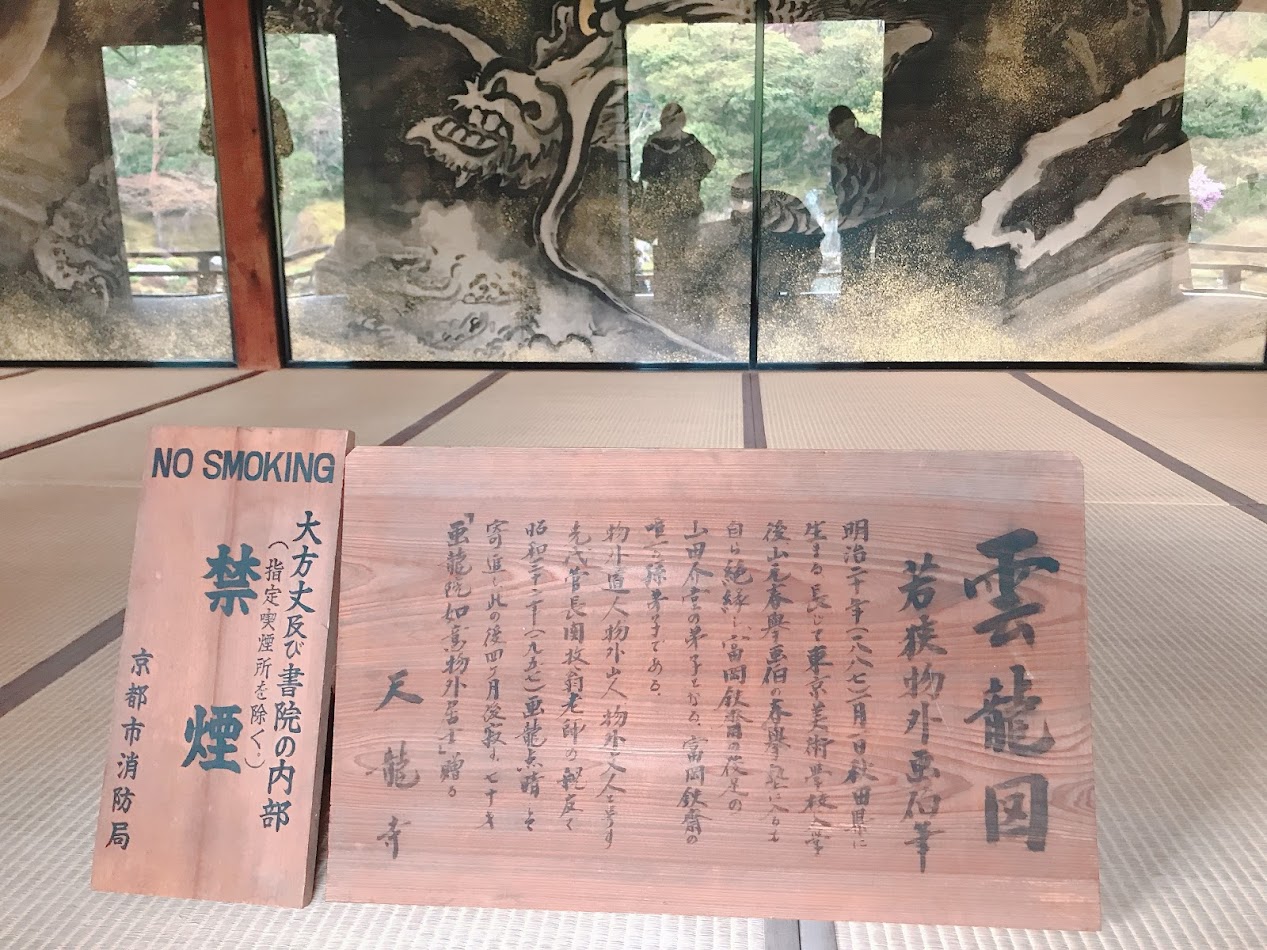 NO SMOKING
大方丈及び書院の内部
(指定喫煙所を除く。)
禁煙
京都市消防局
雲龍図
若狭物外画伯筆
明治二十年(一八八七)二月一日秋田県に
生まる 長じて東京美術学校入学
後山元春挙画伯の春挙塾に入るも
自ら絶縁し、富岡鉄斎の高足の
山田介堂の弟子となる、富岡鉄斎の
唯一の孫弟子である、
物外道人 物外山人 物外丈人と号す
先代管長関牧翁老師の親友で
昭和三十二年(一九五七)画龍点晴して
寄進し此の後四ヶ月後寂す 七十才
「画龍院如意物外居士」贈る
天龍寺